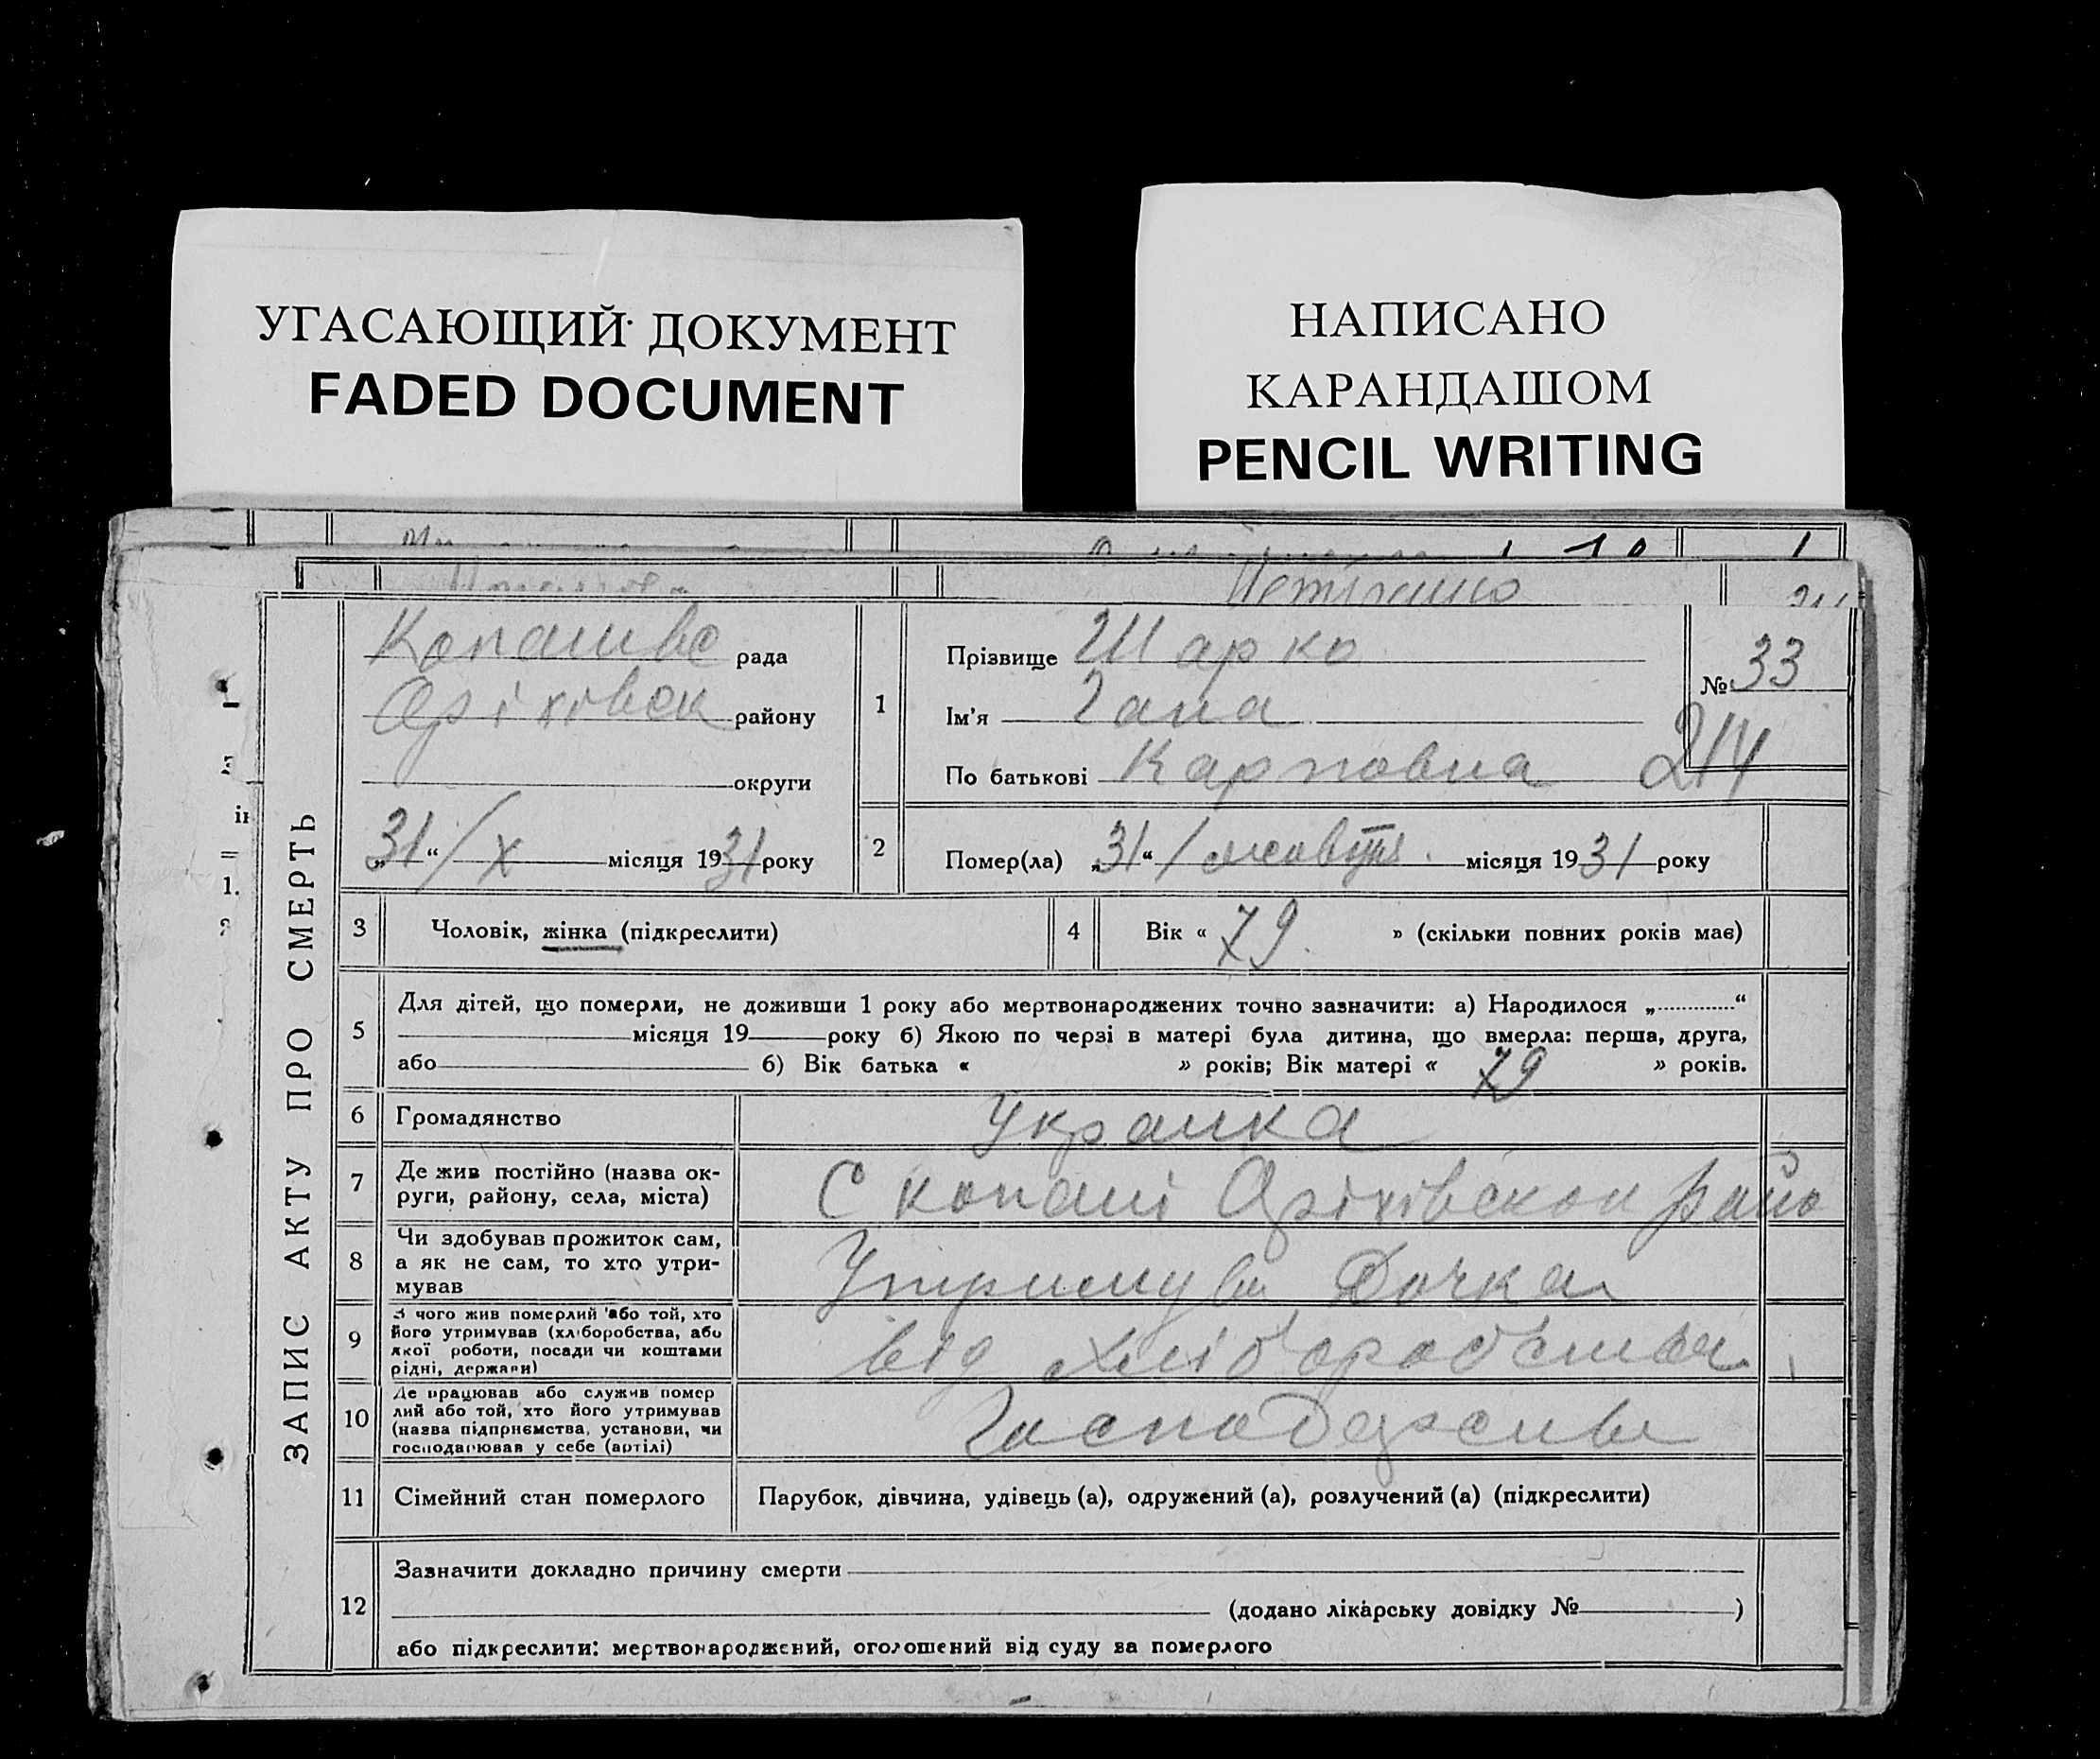 УГАСАЮЩИЙ ДОКУМЕНТ
FADED DOCUMENT
НАПИСАНО
КАРАНДАШОМ
PENCIL WRITING
ЗАПИС АКТУ ПРО СМЕРТЬ
Копанівс рада
Оріхівск району
округи
„31“/X місяця 1931 року
1
Прізвище Шарко
Ім’я Гана
По батькові Карповна
№ 33
214
2
Помер(ла) „31“/жовтня місяця 1931 року
3 Чоловік, жінка (підкреслити)
4 Вік « 79 » (скільки повних років має)
5 Для дітей, що померли, не доживши 1 року або мертвонароджених точно зазначити: а) Народилося „ “
місяця 19 року б) Якою по черзі в матері була дитина, що вмерла: перша, друга,
або б) Вік батька « » років; Вік матері « 79 » років.
6 Громадянство Украинка
7 Де жив постійно (назва ок-
руги, району, села, міста)
С копані Оріхівскок райо
8 Чи здобував прожиток сам,
а як не сам, то хто утри-
мував
Дочка
9 З чого жив померлий або той, хто
його утримував (хліборобства, або
якої роботи, посади чи коштами
рідні, держави)
від хліборобства
10 Де працював або служив помер
лий або той, хто його утримував
(назва підприємства, установи, чи
господарював у себе (артілі)
11 Сімейний стан померлого Парубок, дівчина, удівець (а), одружений (а), розлучений (а) (підкреслити)
12 Зазначити докладно причину смерти
(додано лікарську довідку № )
або підкреслити: мертвонароджений, оголошений від суду за померлого